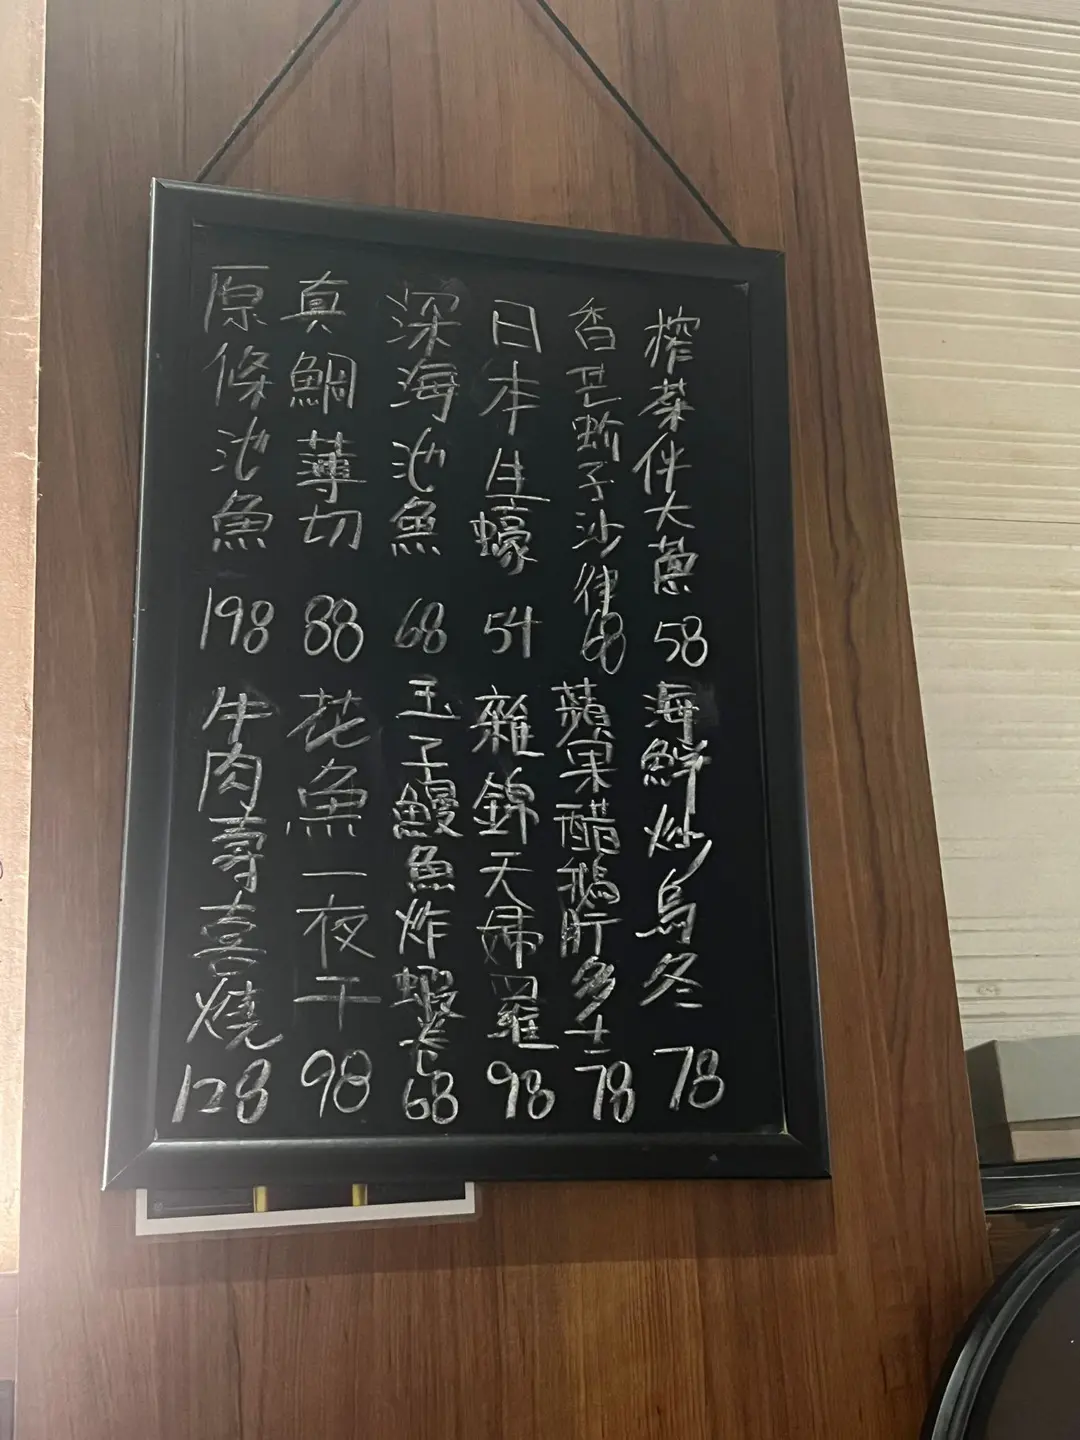 榨菜伴大葱 58
香芒蚧子沙律 68
日本生蠔 54
深海池魚 68
真鯛薄切 88
原條池魚 198
海鮮炒烏冬 78
蘋果醋鵝肝多士 78
雜錦天婦羅 98
玉子鰻魚炸蝦卷 68
花魚一夜干 98
牛肉壽喜燒 128